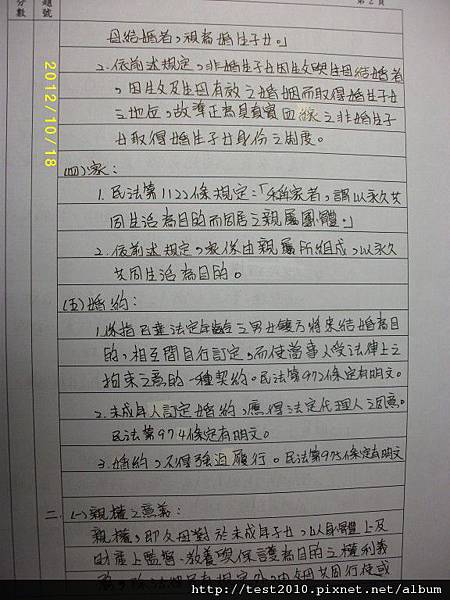 分數 題號 第2頁
母結婚者,視為婚生子女。」
2.依前述規定,非婚生子女因生父與生母結婚者
,因生父及生母有效之婚姻而取得婚生子女
之地位,故準正為具真實血緣之非婚生子
女取得婚生子女身份之制度。
(四)家:
1.民法第1122條規定:「稱家者,謂以永久共
同生活為目的而同居之親屬團體。」
2.依前述規定,家係由親屬所組成,以永久
共同生活為目的。
(五)婚約:
1.係指已達法定年齡之男女雙方將來結婚為目
的,相互間自行訂定,而使當事人受法律上之
拘束之意的一種契約。民法第972條定有明文。
2.未成年人訂定婚約,應得法定代理人之同意。
民法第974條定有明文。
3.婚約,不得強迫履行。民法第975條定有明文
二.(一)親權之意義:
親權,即父母對於未成年子女,以身體上及
財產上監督、教養與保護為目的之權利義
2012/10/18
http://test2010.pixnet.net/album